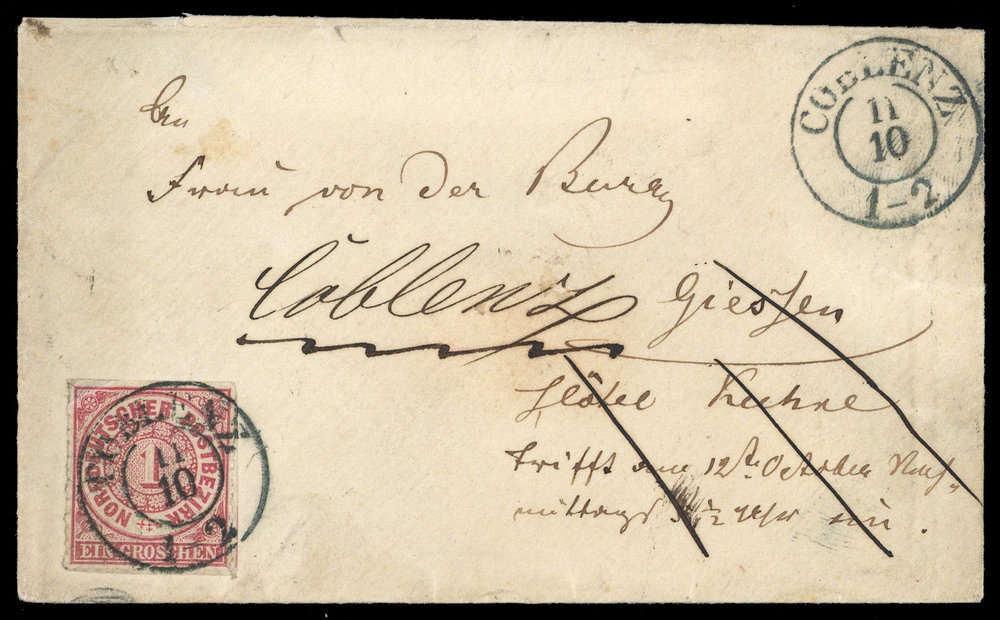 COBLENZ
11
10
1-2
An
Frau von der Burg
Coblenz Giessen
Hôtel Kuhne
trifft am 12ten October Nach-
mittags ½ Uhr ein.
NORDDEUTSCHER POSTBEZIRK
1
EIN GROSCHEN
COBLENZ
11
10
1-2